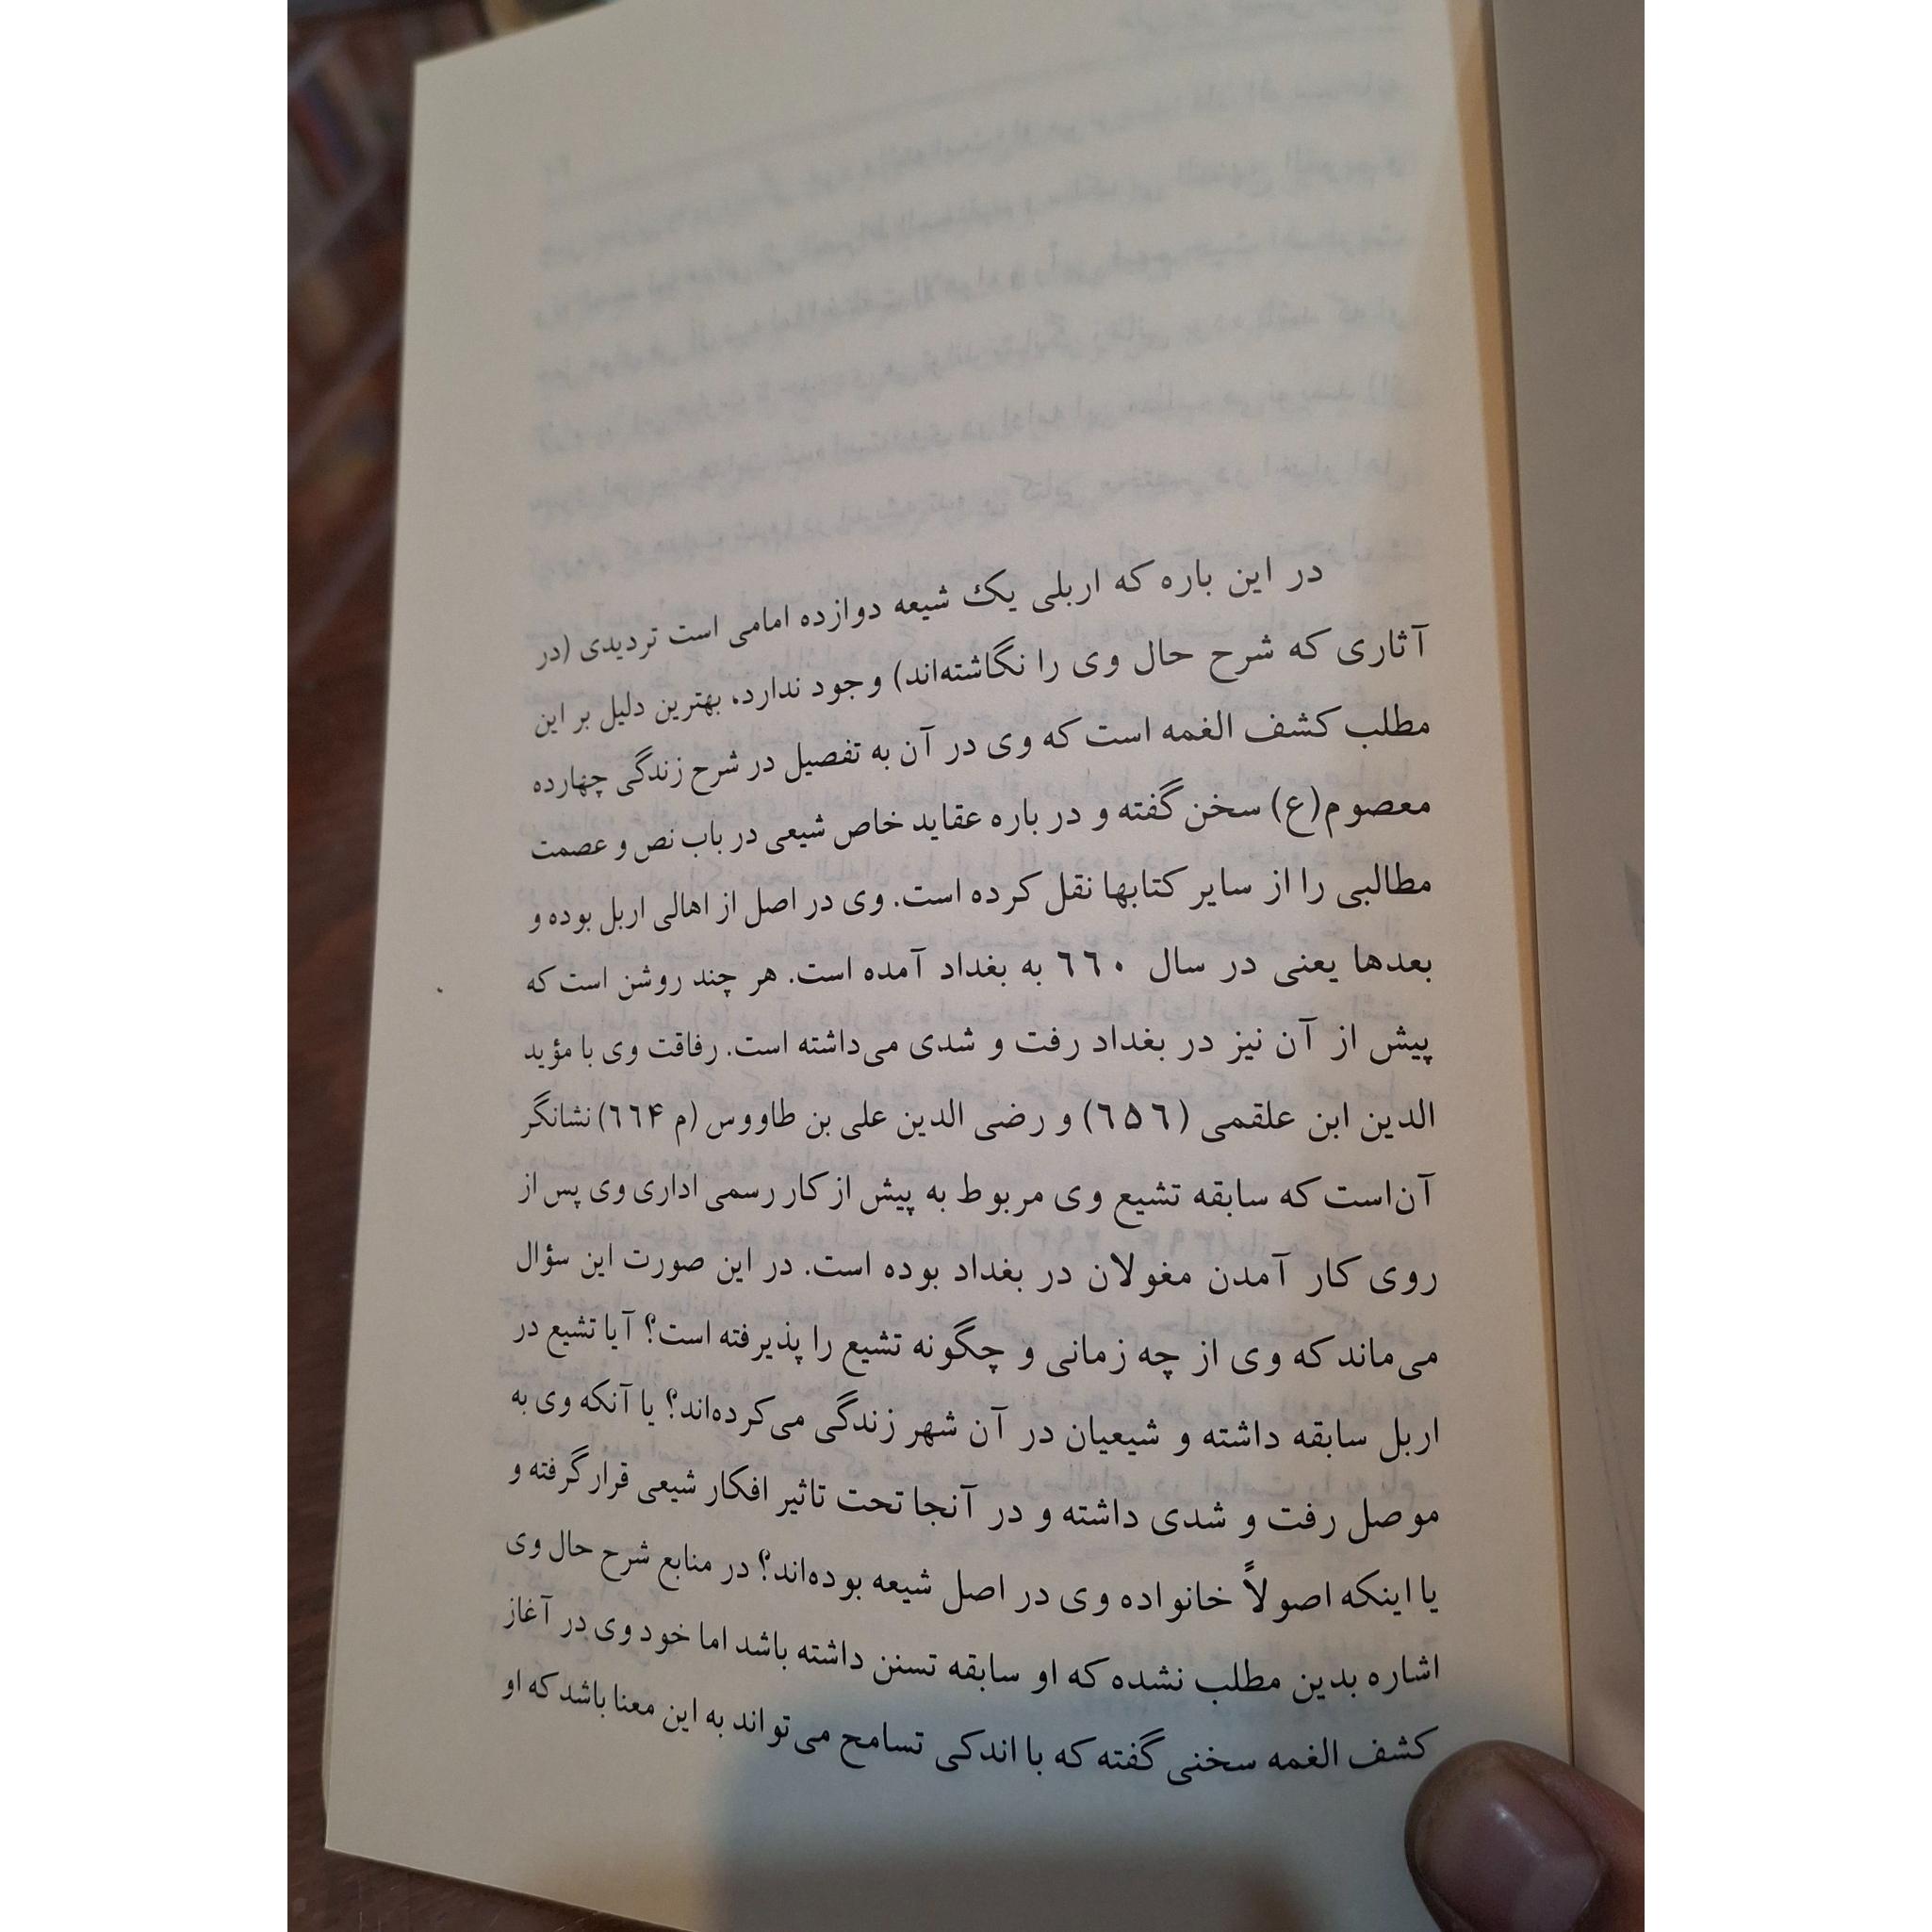 در این باره که اربلی یک شیعه دوازده امامی است تردیدی (در
آثاری که شرح حال وی را نگاشته‌اند) وجود ندارد، بهترین دلیل بر این
مطلب کشف الغمه است که وی در آن به تفصیل در شرح زندگی چهارده
معصوم(ع) سخن گفته و در باره عقاید خاص شیعی در باب نص و عصمت
مطالبی را از سایر کتابها نقل کرده است. وی در اصل از اهالی اربل بوده و
بعدها یعنی در سال ۶۶۰ به بغداد آمده است. هر چند روشن است که
پیش از آن نیز در بغداد رفت و شدی می‌داشته است. رفاقت وی با مؤید
الدین ابن علقمی (۶۵۶) و رضی الدین علی بن طاووس (م ۶۶۴) نشانگر
آن‌است که سابقه تشیع وی مربوط به پیش از کار رسمی اداری وی پس از
روی کار آمدن مغولان در بغداد بوده است. در این صورت این سؤال
می‌ماند که وی از چه زمانی و چگونه تشیع را پذیرفته است؟ آیا تشیع در
اربل سابقه داشته و شیعیان در آن شهر زندگی می‌کرده‌اند؟ یا آنکه وی به
موصل رفت و شدی داشته و در آنجا تحت تاثیر افکار شیعی قرار گرفته و
یا اینکه اصولاً خانواده وی در اصل شیعه بوده‌اند؟ در منابع شرح حال وی
اشاره بدین مطلب نشده که او سابقه تسنن داشته باشد اما خود وی در آغاز
کشف الغمه سخنی گفته که با اندکی تسامح می‌تواند به این معنا باشد که او